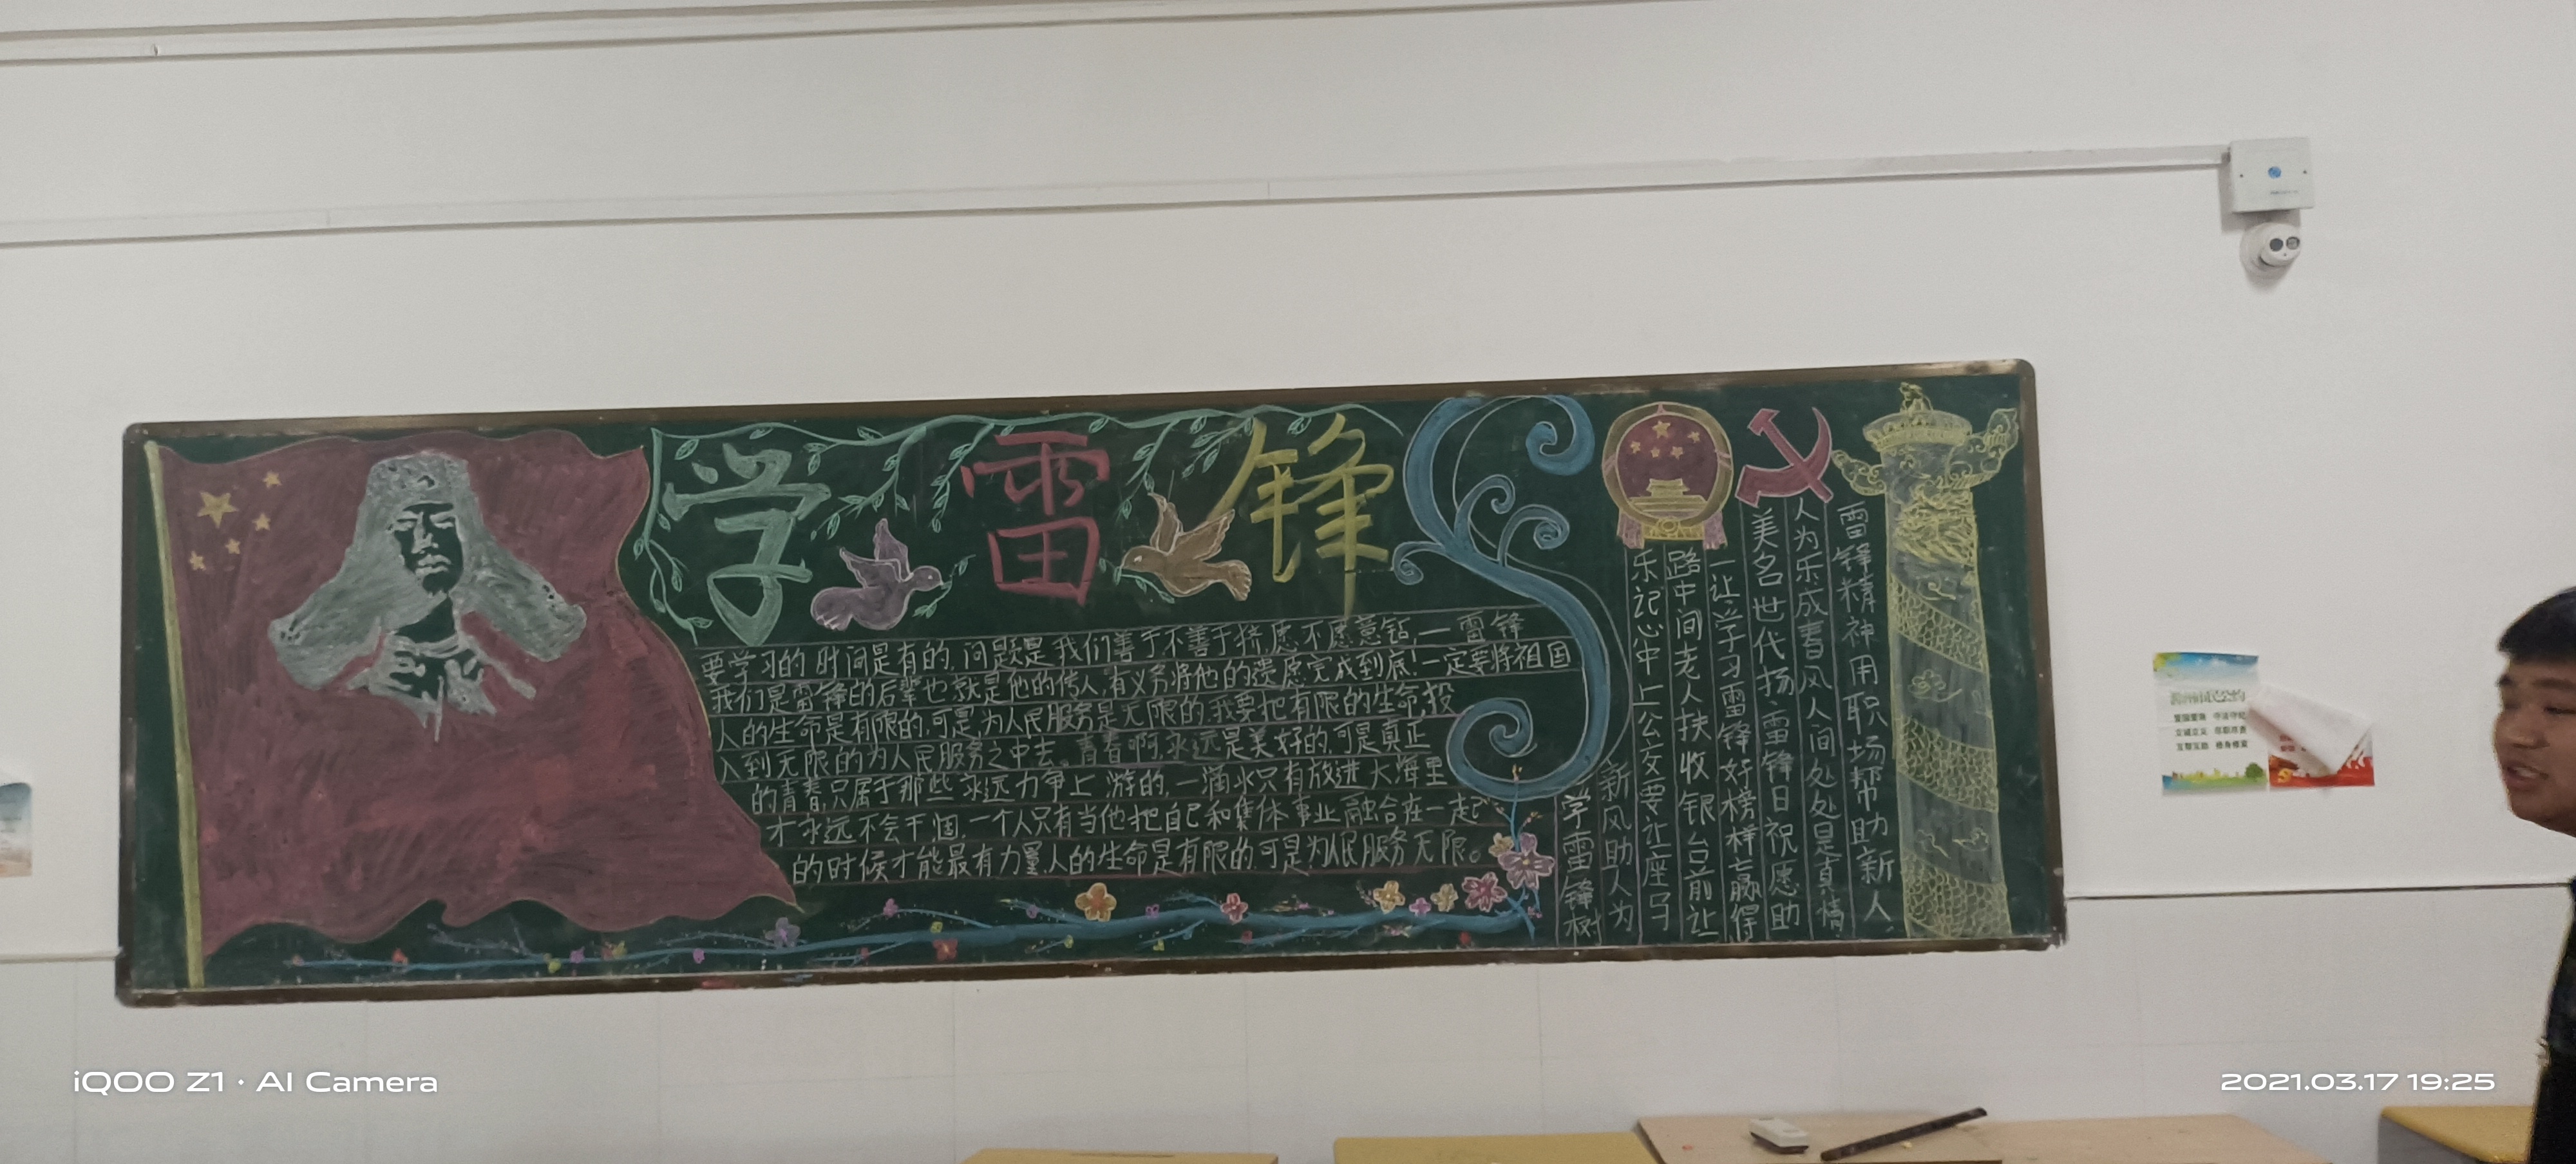 学雷锋
要学习的时间是有的,问题是我们善于不善于挤,愿不愿意钻,一雷锋
我们是雷锋的后辈也就是他的传人,有义务将他的遗愿完成到底!一定要将祖国
人的生命是有限的,可是,为人民服务是无限的,我要把有限的生命,投
入到无限的为人民服务之中去。青春啊,永远是美好的,可是真正
的青春,只属于那些永远力争上游的,一滴水只有放进大海里
才永远不会干涸,一个人只有当他把自己和集体事业融合在一起
的时候才能最有力量,人的生命是有限的可是为人民服务无限。
学雷锋树
新风助人为
乐记心中上公交要让座马
路中间老人扶收银台前让
一让学习雷锋好榜样赢得
美名世代扬雷锋日祝愿助
人为乐成春风人间处处是真情
雷锋精神用职场帮助新人.
爱国爱家 守法守纪
iQOO Z1 · AI Camera
2021.03.17 19:25